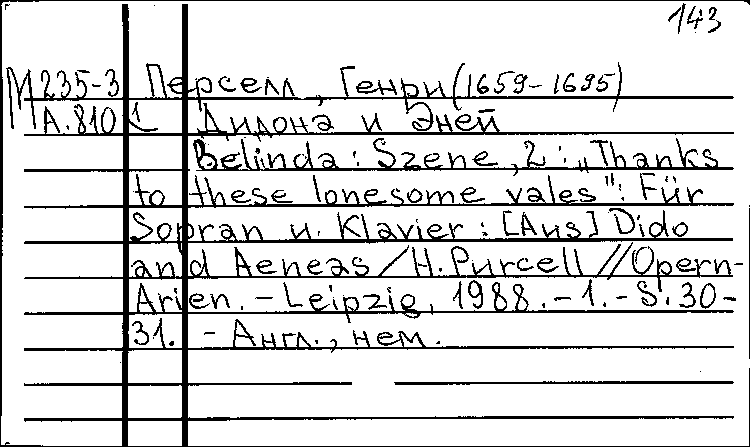 143
М235-3 Перселл, Генри (1659-1695)
А.810 1 Дидона и Эней
Belinda : Szene, 2 : „Thanks
to these lonesome vales" : Für
Sopran u. Klavier : [Aus] Dido
and Aeneas / H. Purcell // Opern-
Arien. - Leipzig, 1988. - 1. - S. 30-
31. - Англ., нем.